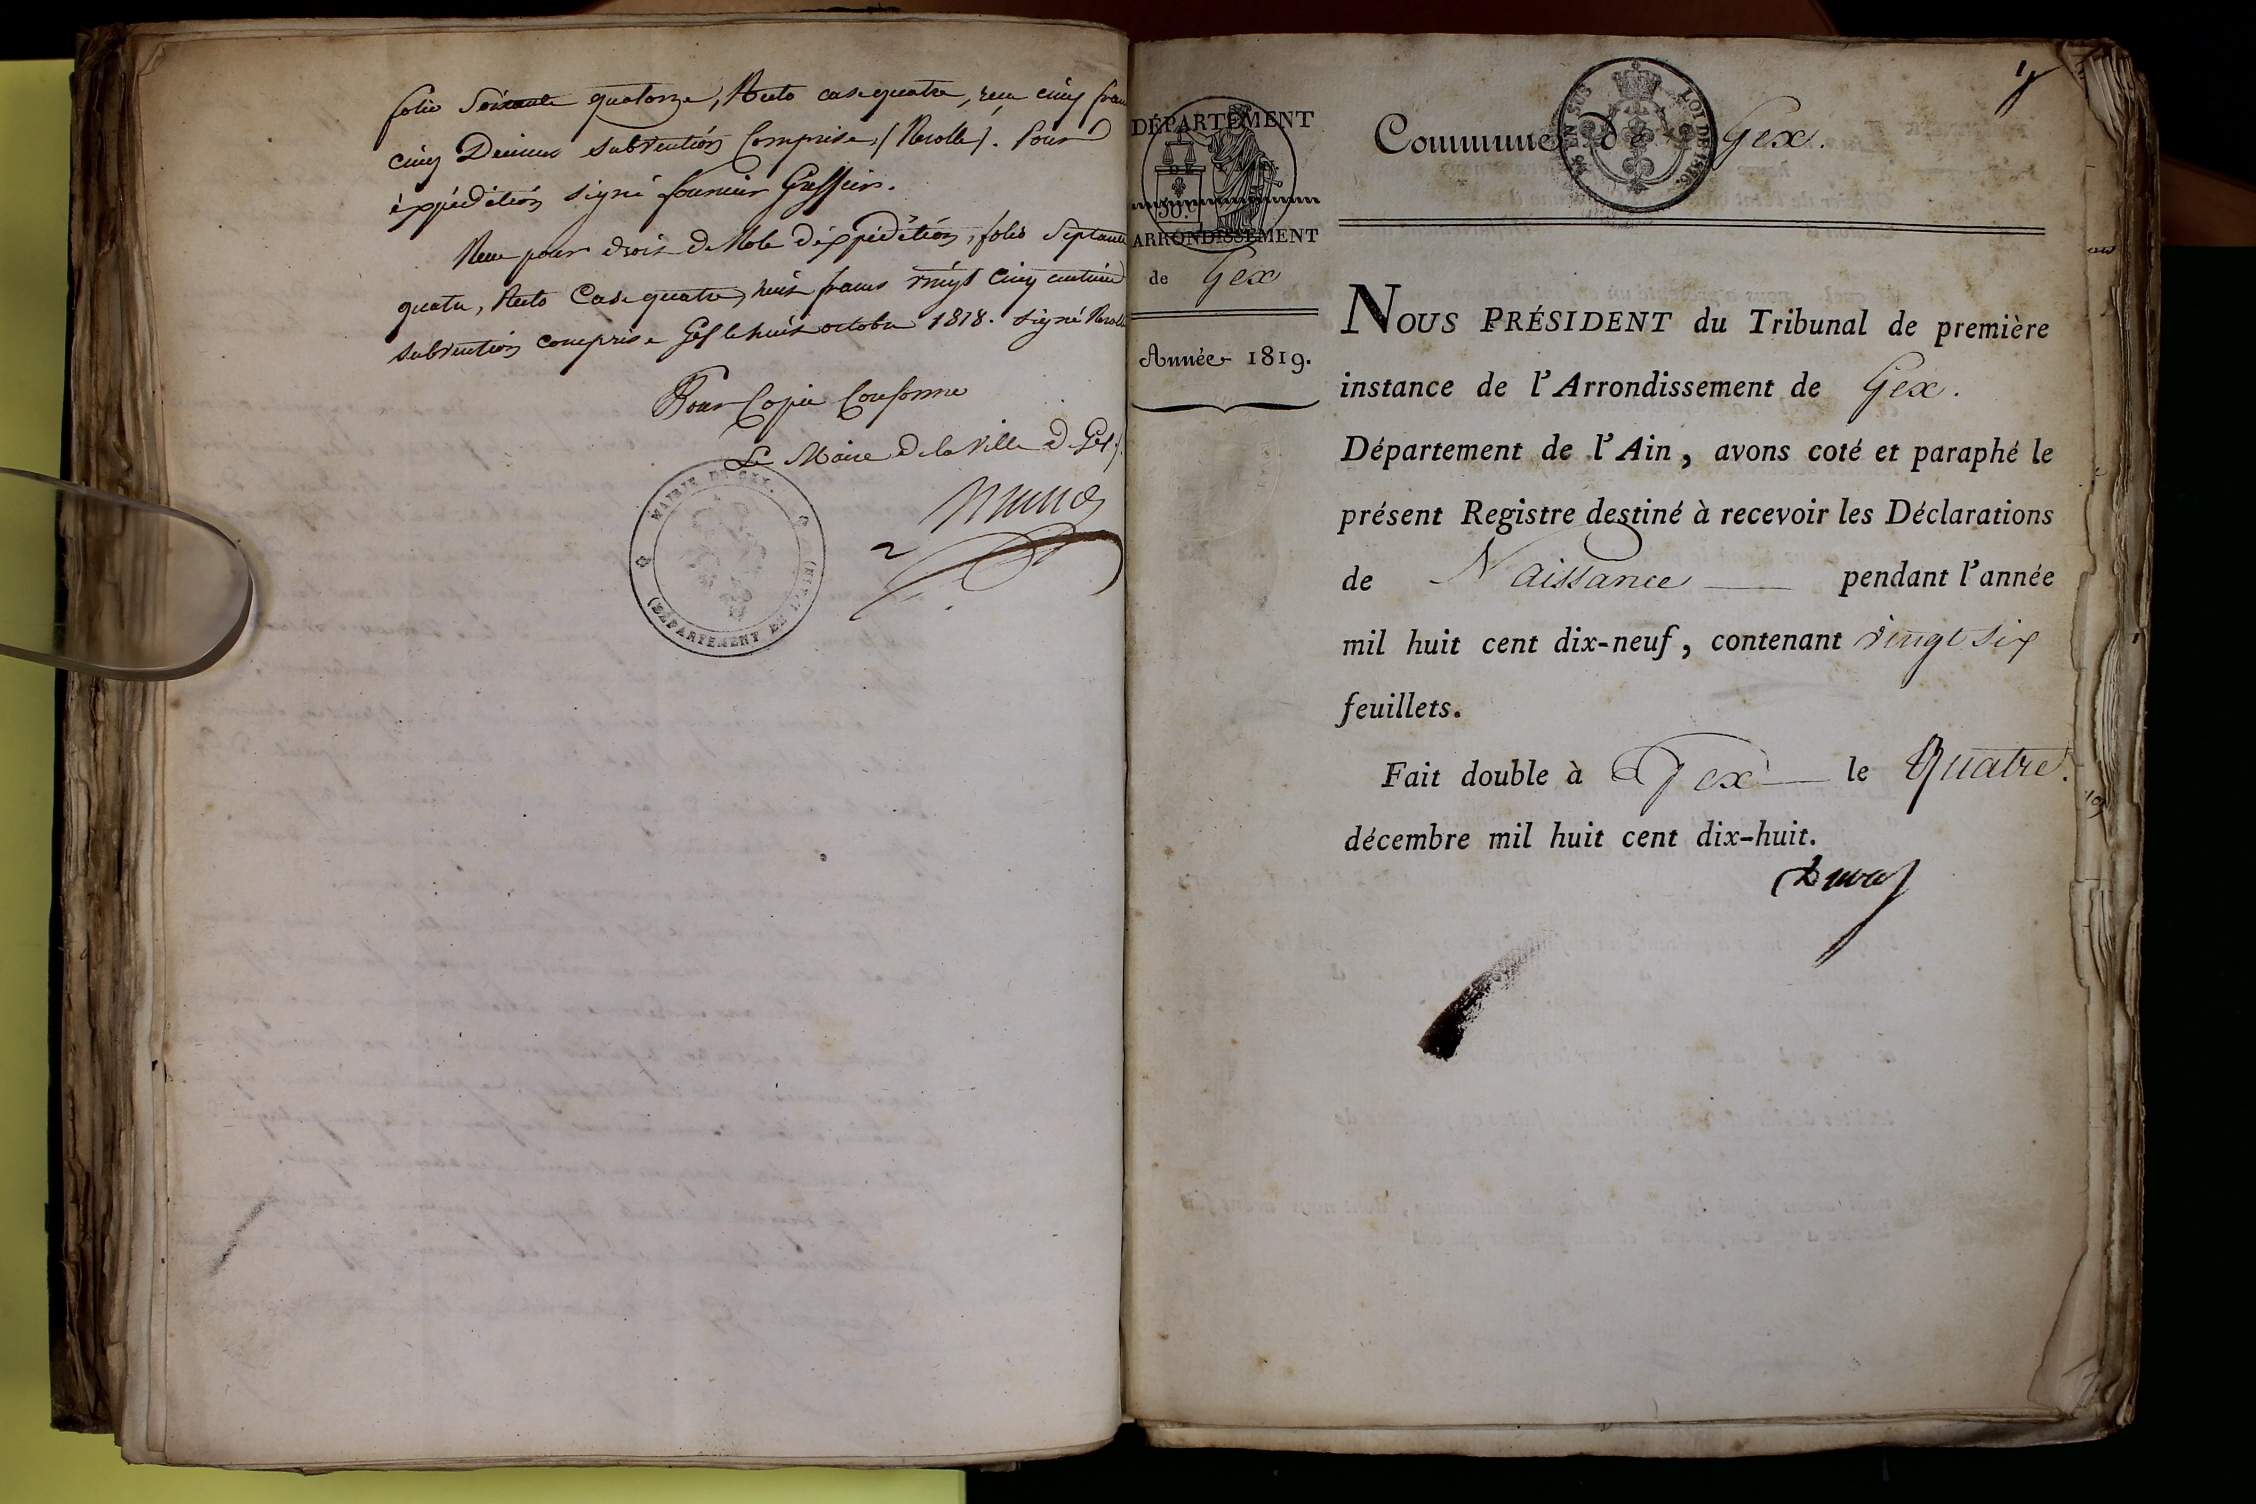 folio Soixante quatorze, Recto case quatre, reçu cinq francs
cinq Decimes subvention Comprise, (Nerolle). Pour
éxpédition signé fournier Greffier.
Recu pour droit de Role d'éxpédition, folio Septante
quatre, Recto Case quatre, huit francs vingt cinq centimes
subvention comprise Gex le huit octobre 1818. signé Nerolle
Pour Copie Conforme
Le Maire de la ville de Gex
MAIRIE DE GEX.
(DÉPARTEMENT DE L'AIN)
DÉPARTEMENT
DE
50.c
ARRONDISSEMENT
de Gex
Année 1819.
EN SUS
LOI DE 1816.
1
Commune de Gex.
NOUS PRÉSIDENT du Tribunal de première
instance de l'Arrondissement de Gex.
Département de l'Ain, avons coté et paraphé le
présent Registre destiné à recevoir les Déclarations
de Naissance pendant l'année
mil huit cent dix-neuf, contenant vingt six
feuillets.
Fait double à Gex le Quatre.
décembre mil huit cent dix-huit.